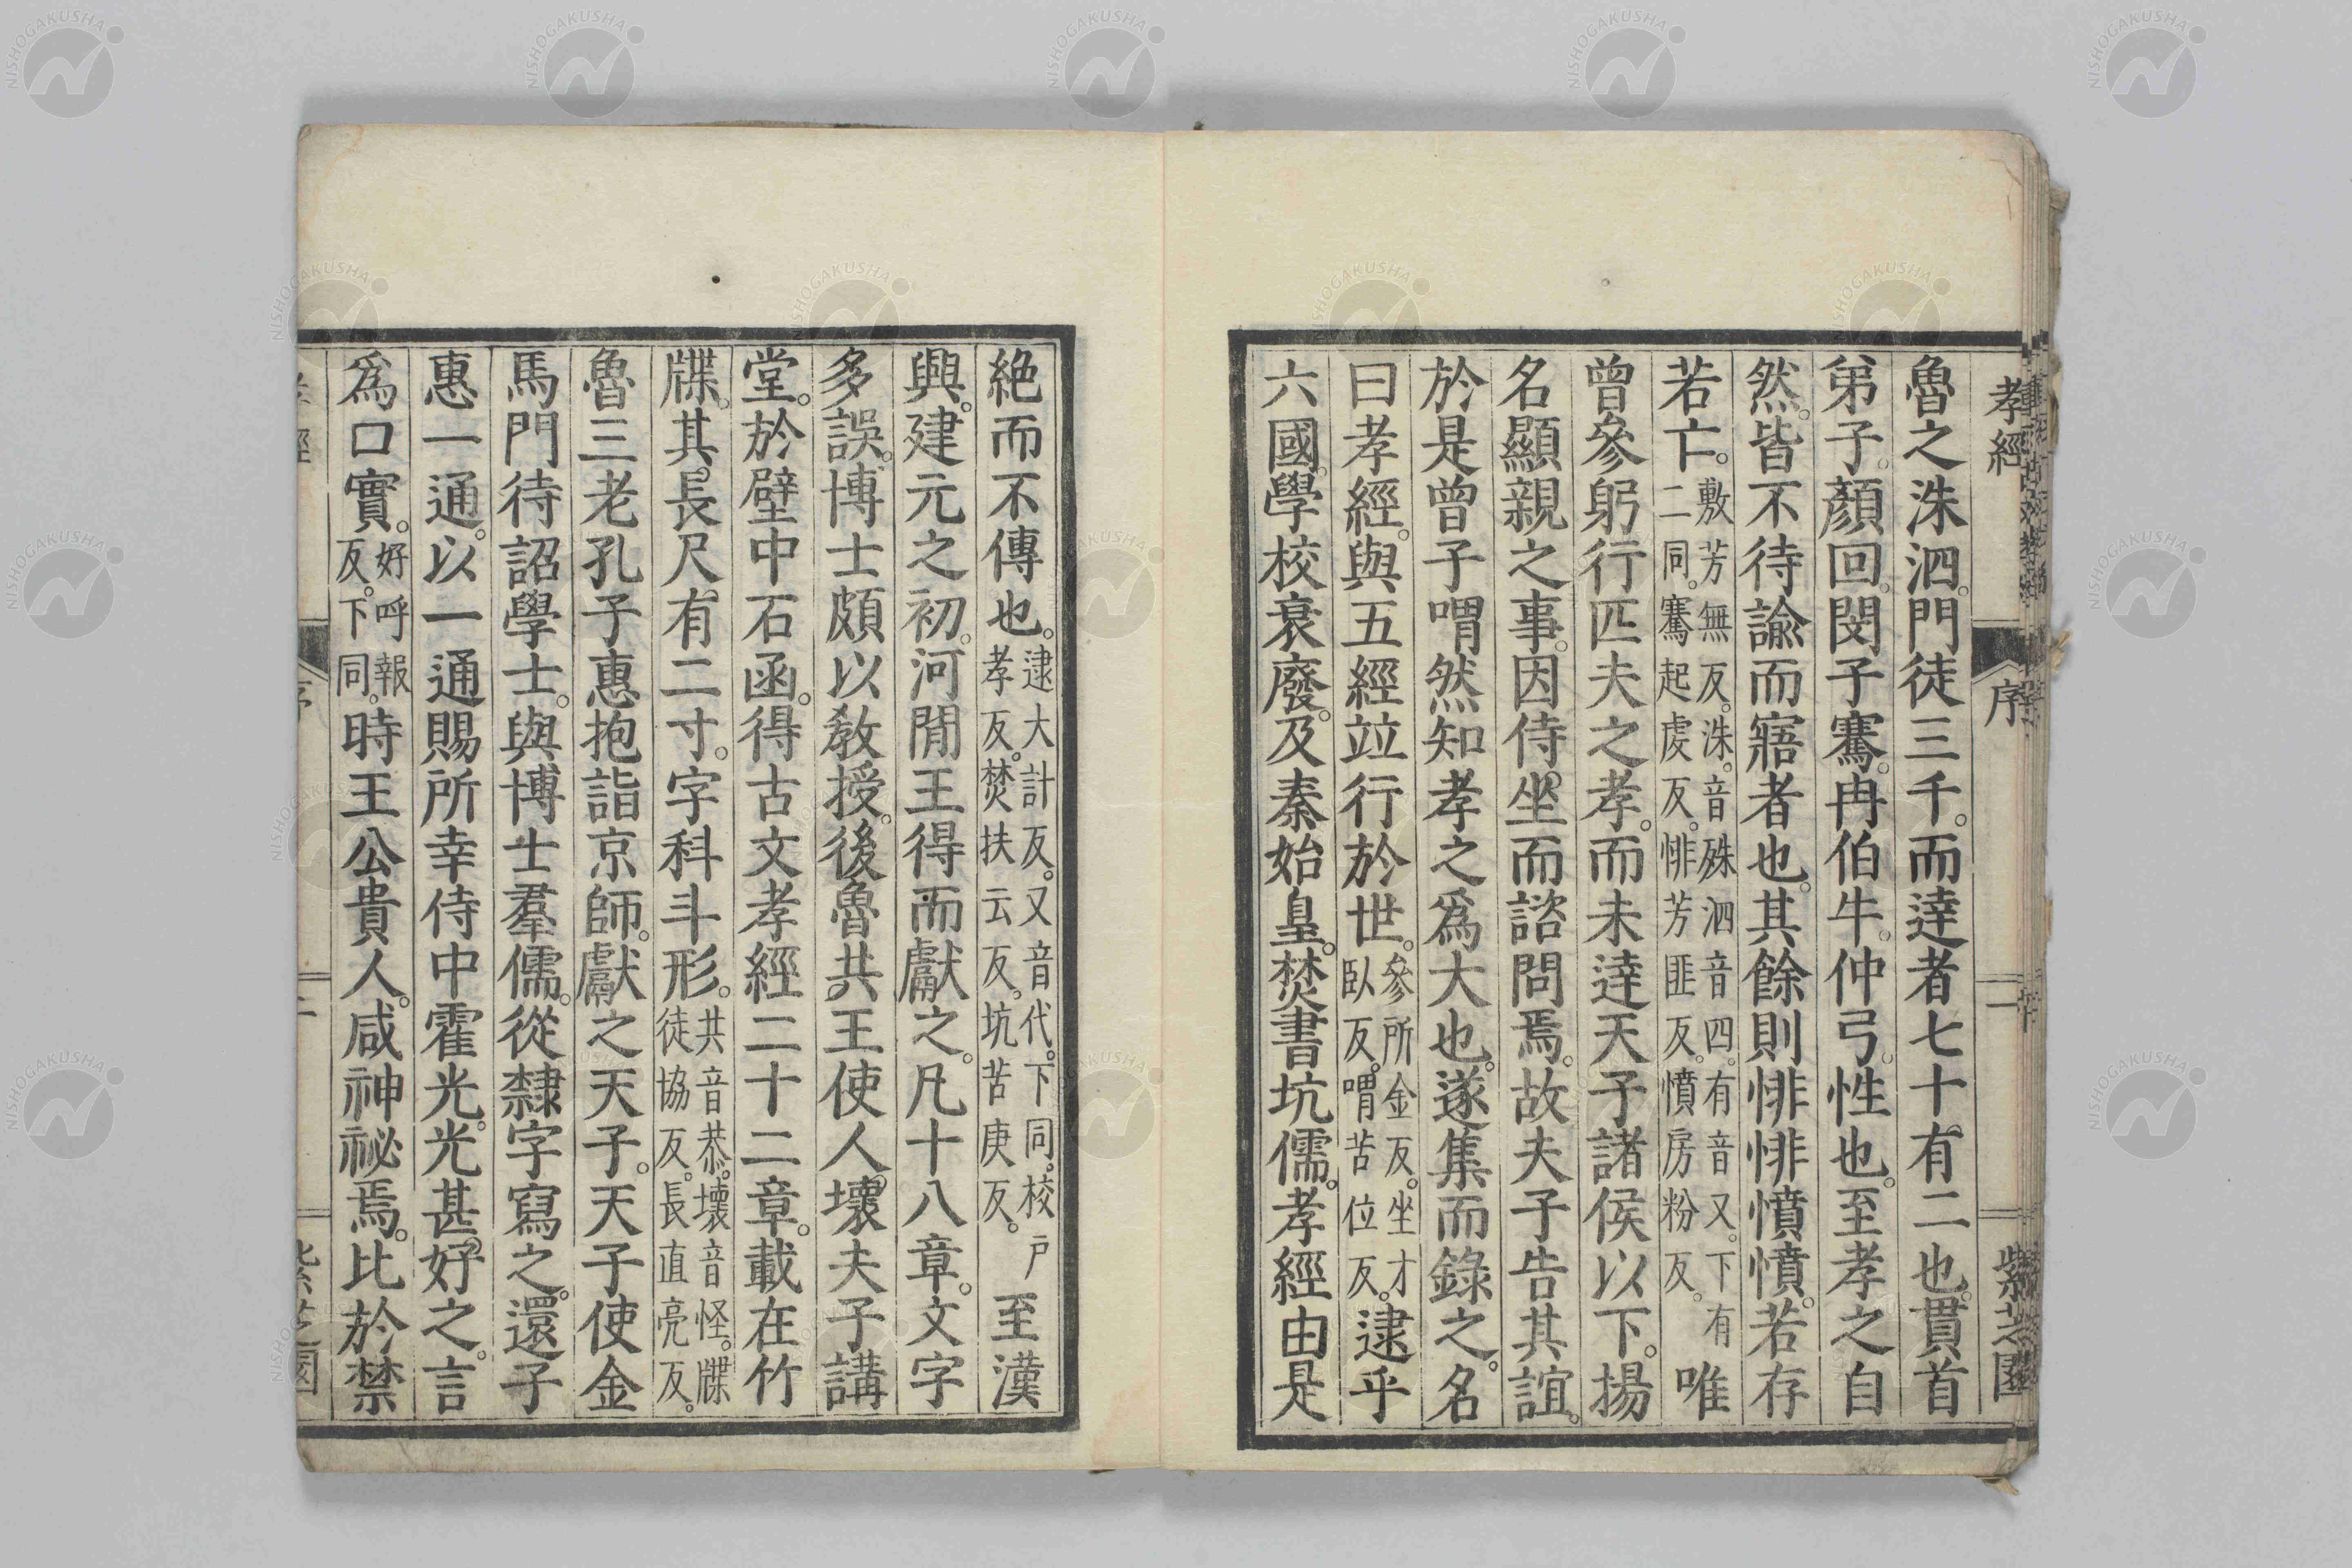 孝經 序 一 紫芝園
魯之洙泗。門徒三千。而達者七十有二也。貫首
弟子。顏回。閔子騫。冉伯牛。仲弓。性也。至孝之自
然。皆不待諭而寤者也。其餘則悱悱憤憤。若存
若亡。敷芳無反。洙。音殊泗音四。有音又。下有二同。騫起虔反。悱芳匪反。憤房粉反。唯
曾參躬行匹夫之孝。而未達天子諸侯以下。揚
名顯親之事。因侍坐而諮問焉。故夫子告其誼。
於是曾子喟然知孝之爲大也。遂集而錄之。名
曰孝經。與五經竝行於世。參所金反。坐才臥反。喟苦位反。逮乎
六國。學校衰廢。及秦始皇。焚書坑儒。孝經由是
絶而不傳也。逮大計反。又音代。下同。校戶孝反。焚扶云反。坑苦庚反。至漢
興。建元之初。河閒王得而獻之。凡十八章。文字
多誤。博士頗以敎授。後魯共王使人壞夫子講
堂。於壁中石函。得古文孝經二十二章。載在竹
牒。其長尺有二寸。字科斗形。共音恭。壞音怪。牒徒協反。長直亮反。
魯三老孔子惠抱詣京師。獻之天子。天子使金
馬門待詔學士。與博士羣儒。從隸字寫之。還子
惠一通。以一通賜所幸侍中霍光。光甚好之。言
爲口實。好呼報反。下同。時王公貴人。咸神祕焉。比於禁